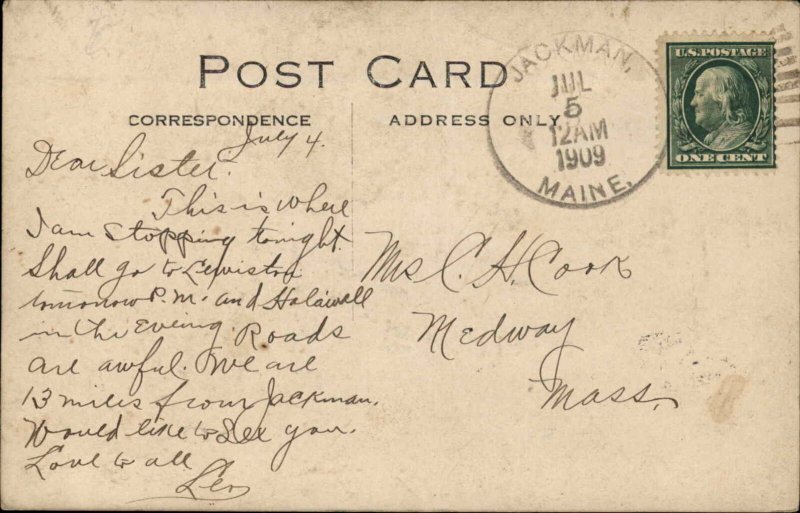 POST CARD
CORRESPONDENCE
ADDRESS ONLY
JACKMAN,
JUL
5
12AM
1909
MAINE,
U.S. POSTAGE
ONE CENT
July 4.
Dear Sister.
This is where
I am stopping tonight.
Shall go to Lewiston
tomorrow P.M. and Halawell
in the Eveing. Roads
are awful. We are
13 miles from Jackman.
Would like to see you.
Love to all
Leo
Mrs C. H. Cook
Medway
Mass.